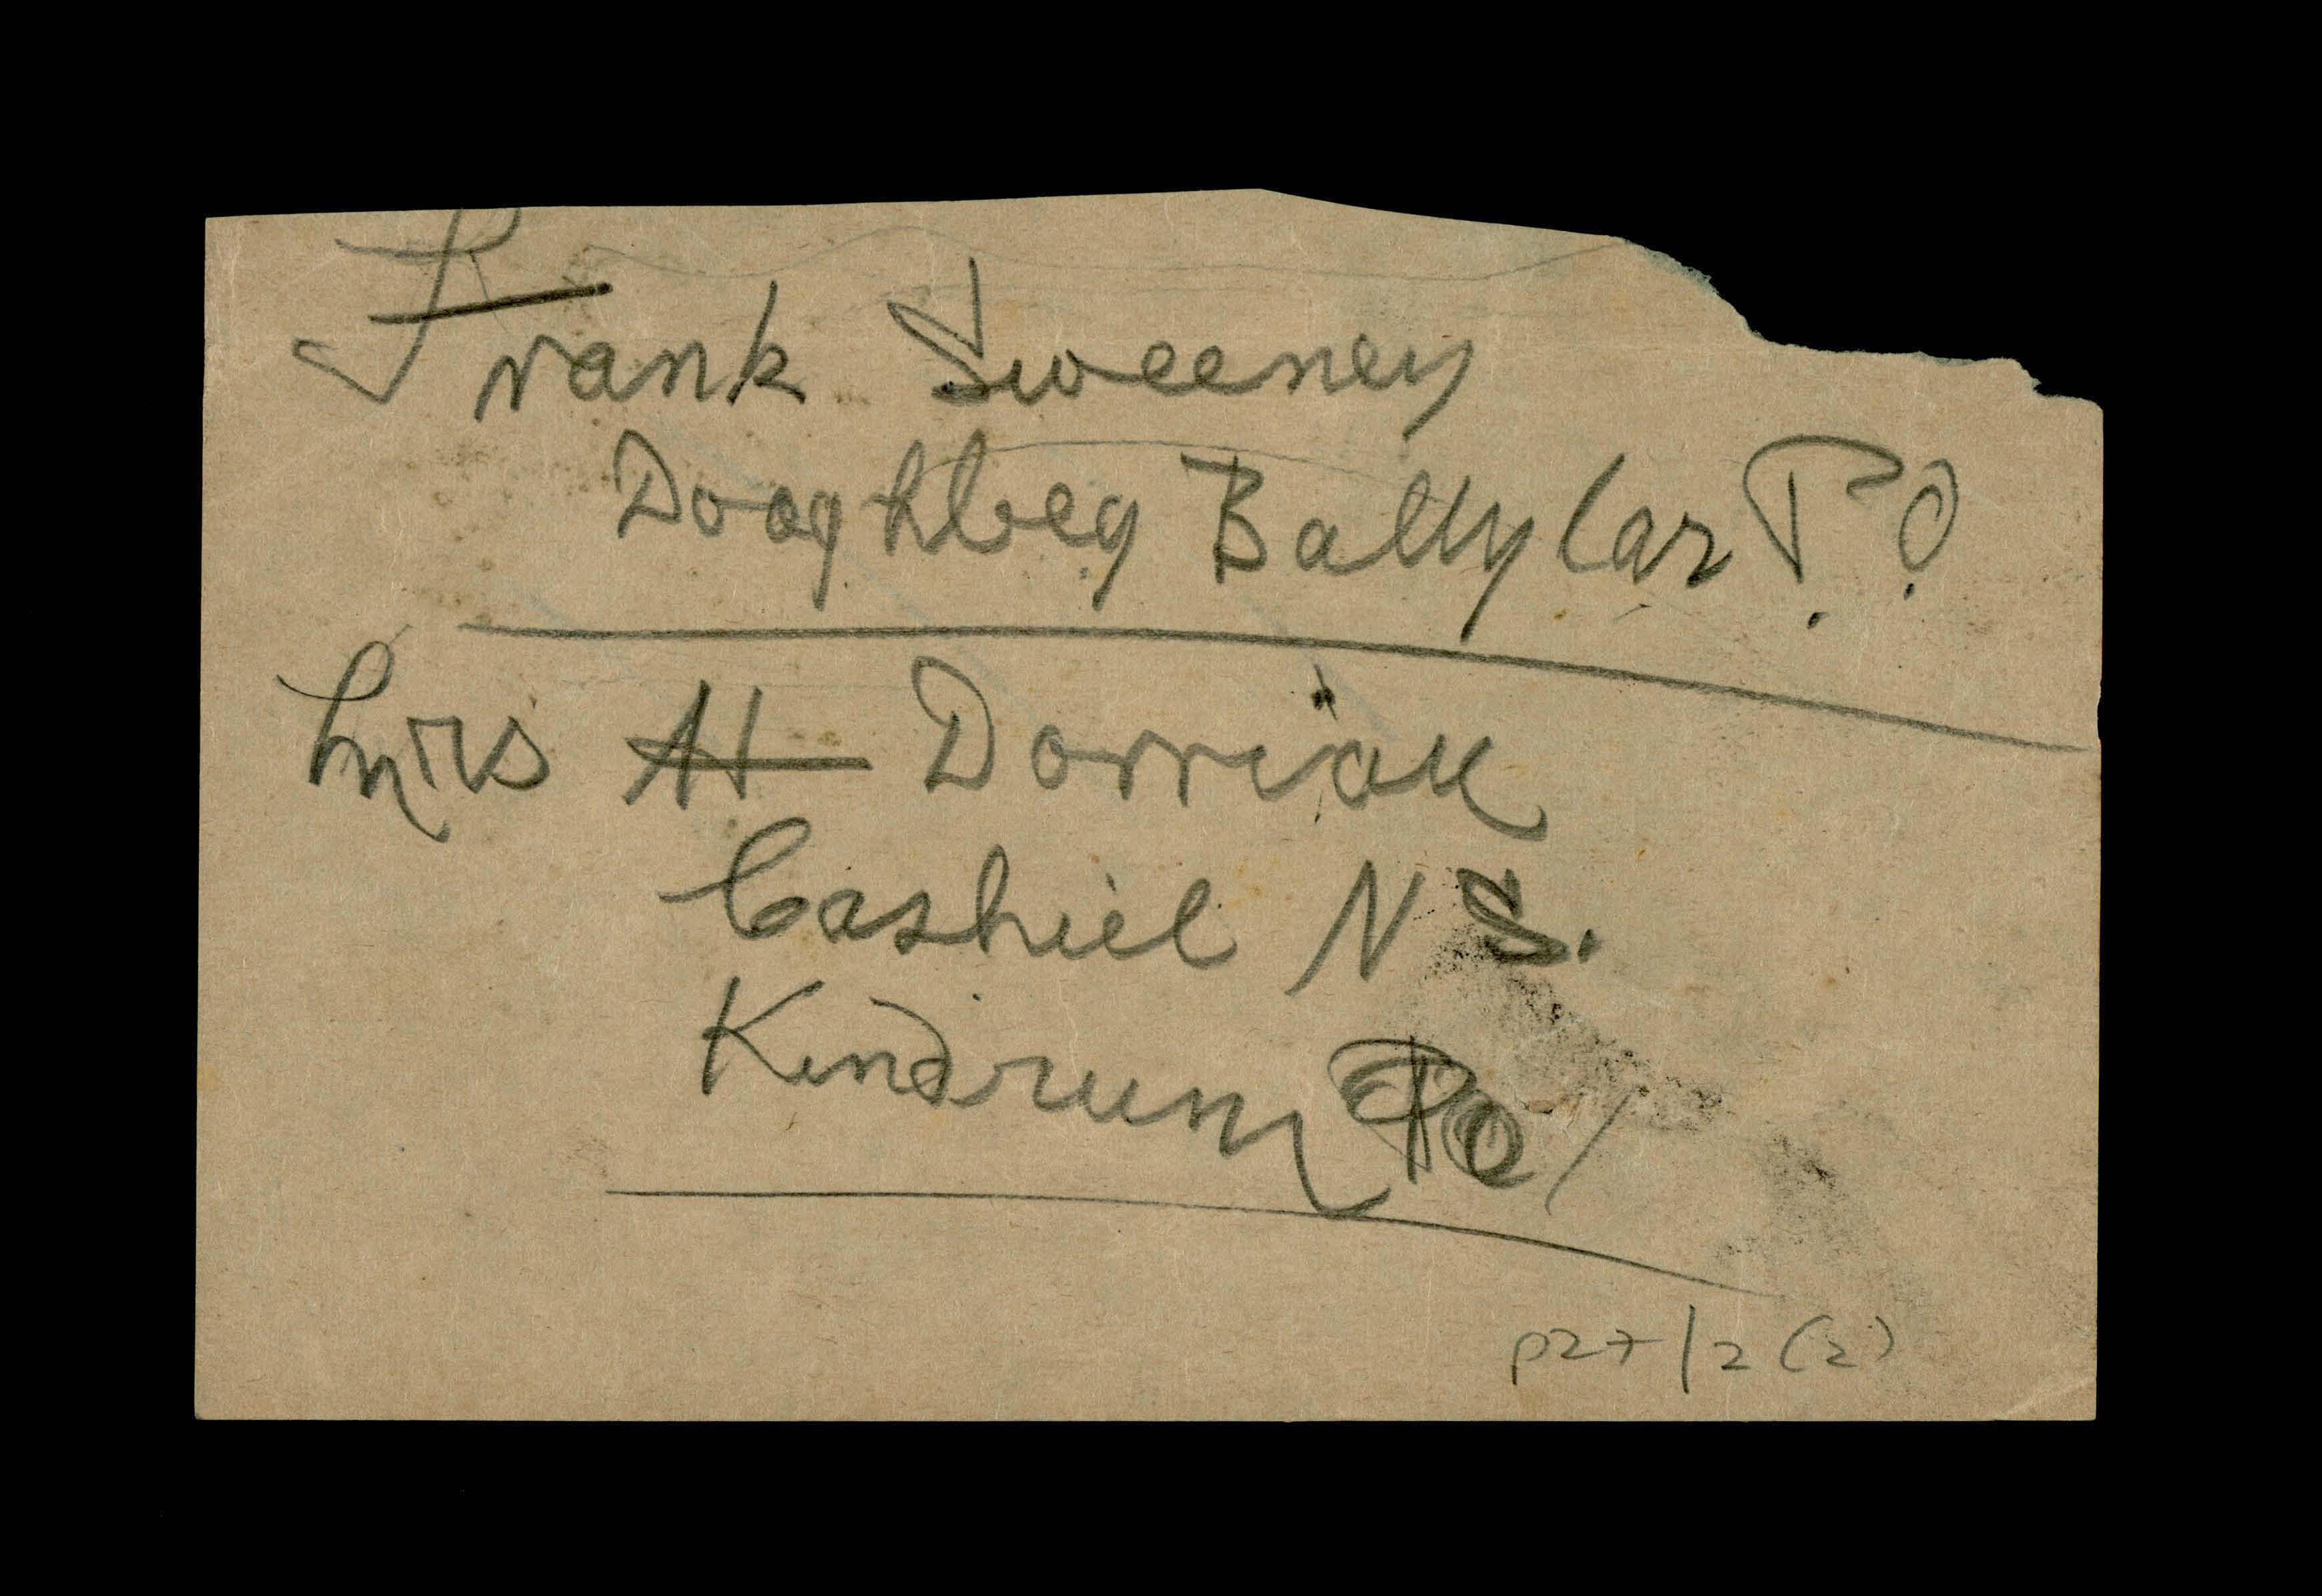 Frank Sweeney
Dooghbeg Ballylar P.O.
Mrs H Dorrian
Cashiel N S.
Kindrum PO
P27/2(2)